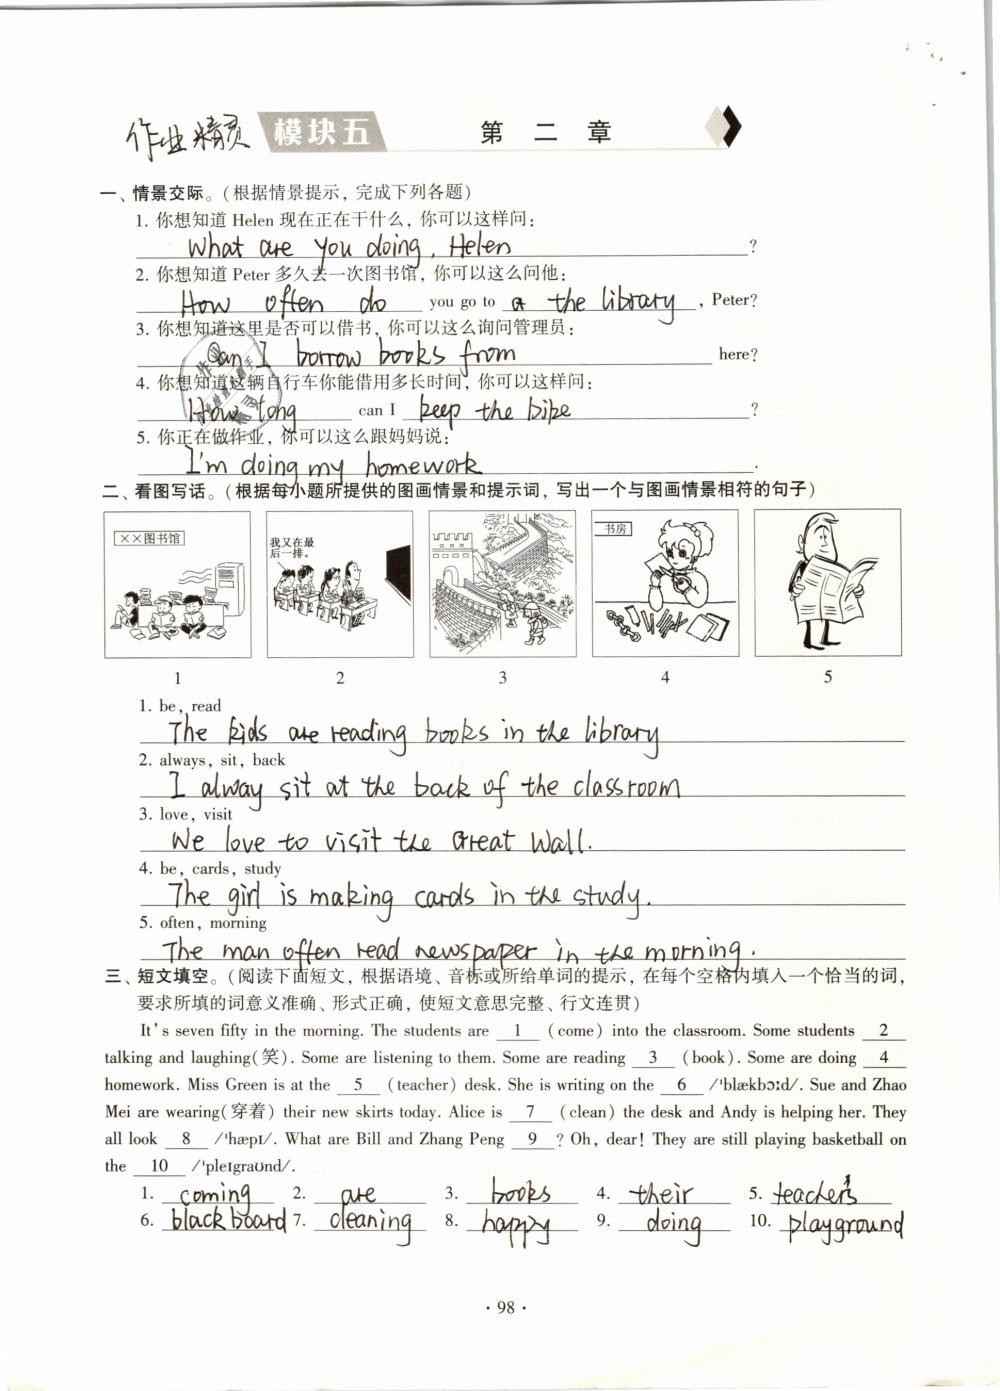 作业精灵 模块五 第 二 章
一、情景交际。(根据情景提示, 完成下列各题)
1. 你想知道 Helen 现在正在干什么, 你可以这样问:
What are you doing, Helen ?
2. 你想知道 Peter 多久去一次图书馆, 你可以这么问他:
How often do you go to the library , Peter?
3. 你想知道这里是否可以借书, 你可以这么询问管理员:
Can I borrow books from here?
4. 你想知道这辆自行车你能借用多长时间, 你可以这样问:
How long can I keep the bike ?
5. 你正在做作业, 你可以这么跟妈妈说:
I'm doing my homework .
二、看图写话。(根据每小题所提供的图画情景和提示词, 写出一个与图画情景相符的句子)
××图书馆
我又在最
后一排。
书房
1 2 3 4 5
1. be, read
The kids are reading books in the library
2. always, sit, back
I alway sit at the back of the classroom
3. love, visit
We love to visit the Great Wall.
4. be, cards, study
The girl is making cards in the study.
5. often, morning
The man often read newspaper in the morning.
三、短文填空。(阅读下面短文, 根据语境、音标或所给单词的提示, 在每个空格内填入一个恰当的词,
要求所填的词意义准确、形式正确, 使短文意思完整、行文连贯)
It's seven fifty in the morning. The students are 1 (come) into the classroom. Some students 2
talking and laughing(笑). Some are listening to them. Some are reading 3 (book). Some are doing 4
homework. Miss Green is at the 5 (teacher) desk. She is writing on the 6 /'blækbɔːd/. Sue and Zhao
Mei are wearing(穿着) their new skirts today. Alice is 7 (clean) the desk and Andy is helping her. They
all look 8 /'hæpɪ/. What are Bill and Zhang Peng 9 ? Oh, dear! They are still playing basketball on
the 10 /'pleɪɡraʊnd/.
1. coming 2. are 3. books 4. their 5. teacher's
6. blackboard 7. cleaning 8. happy 9. doing 10. playground
· 98 ·